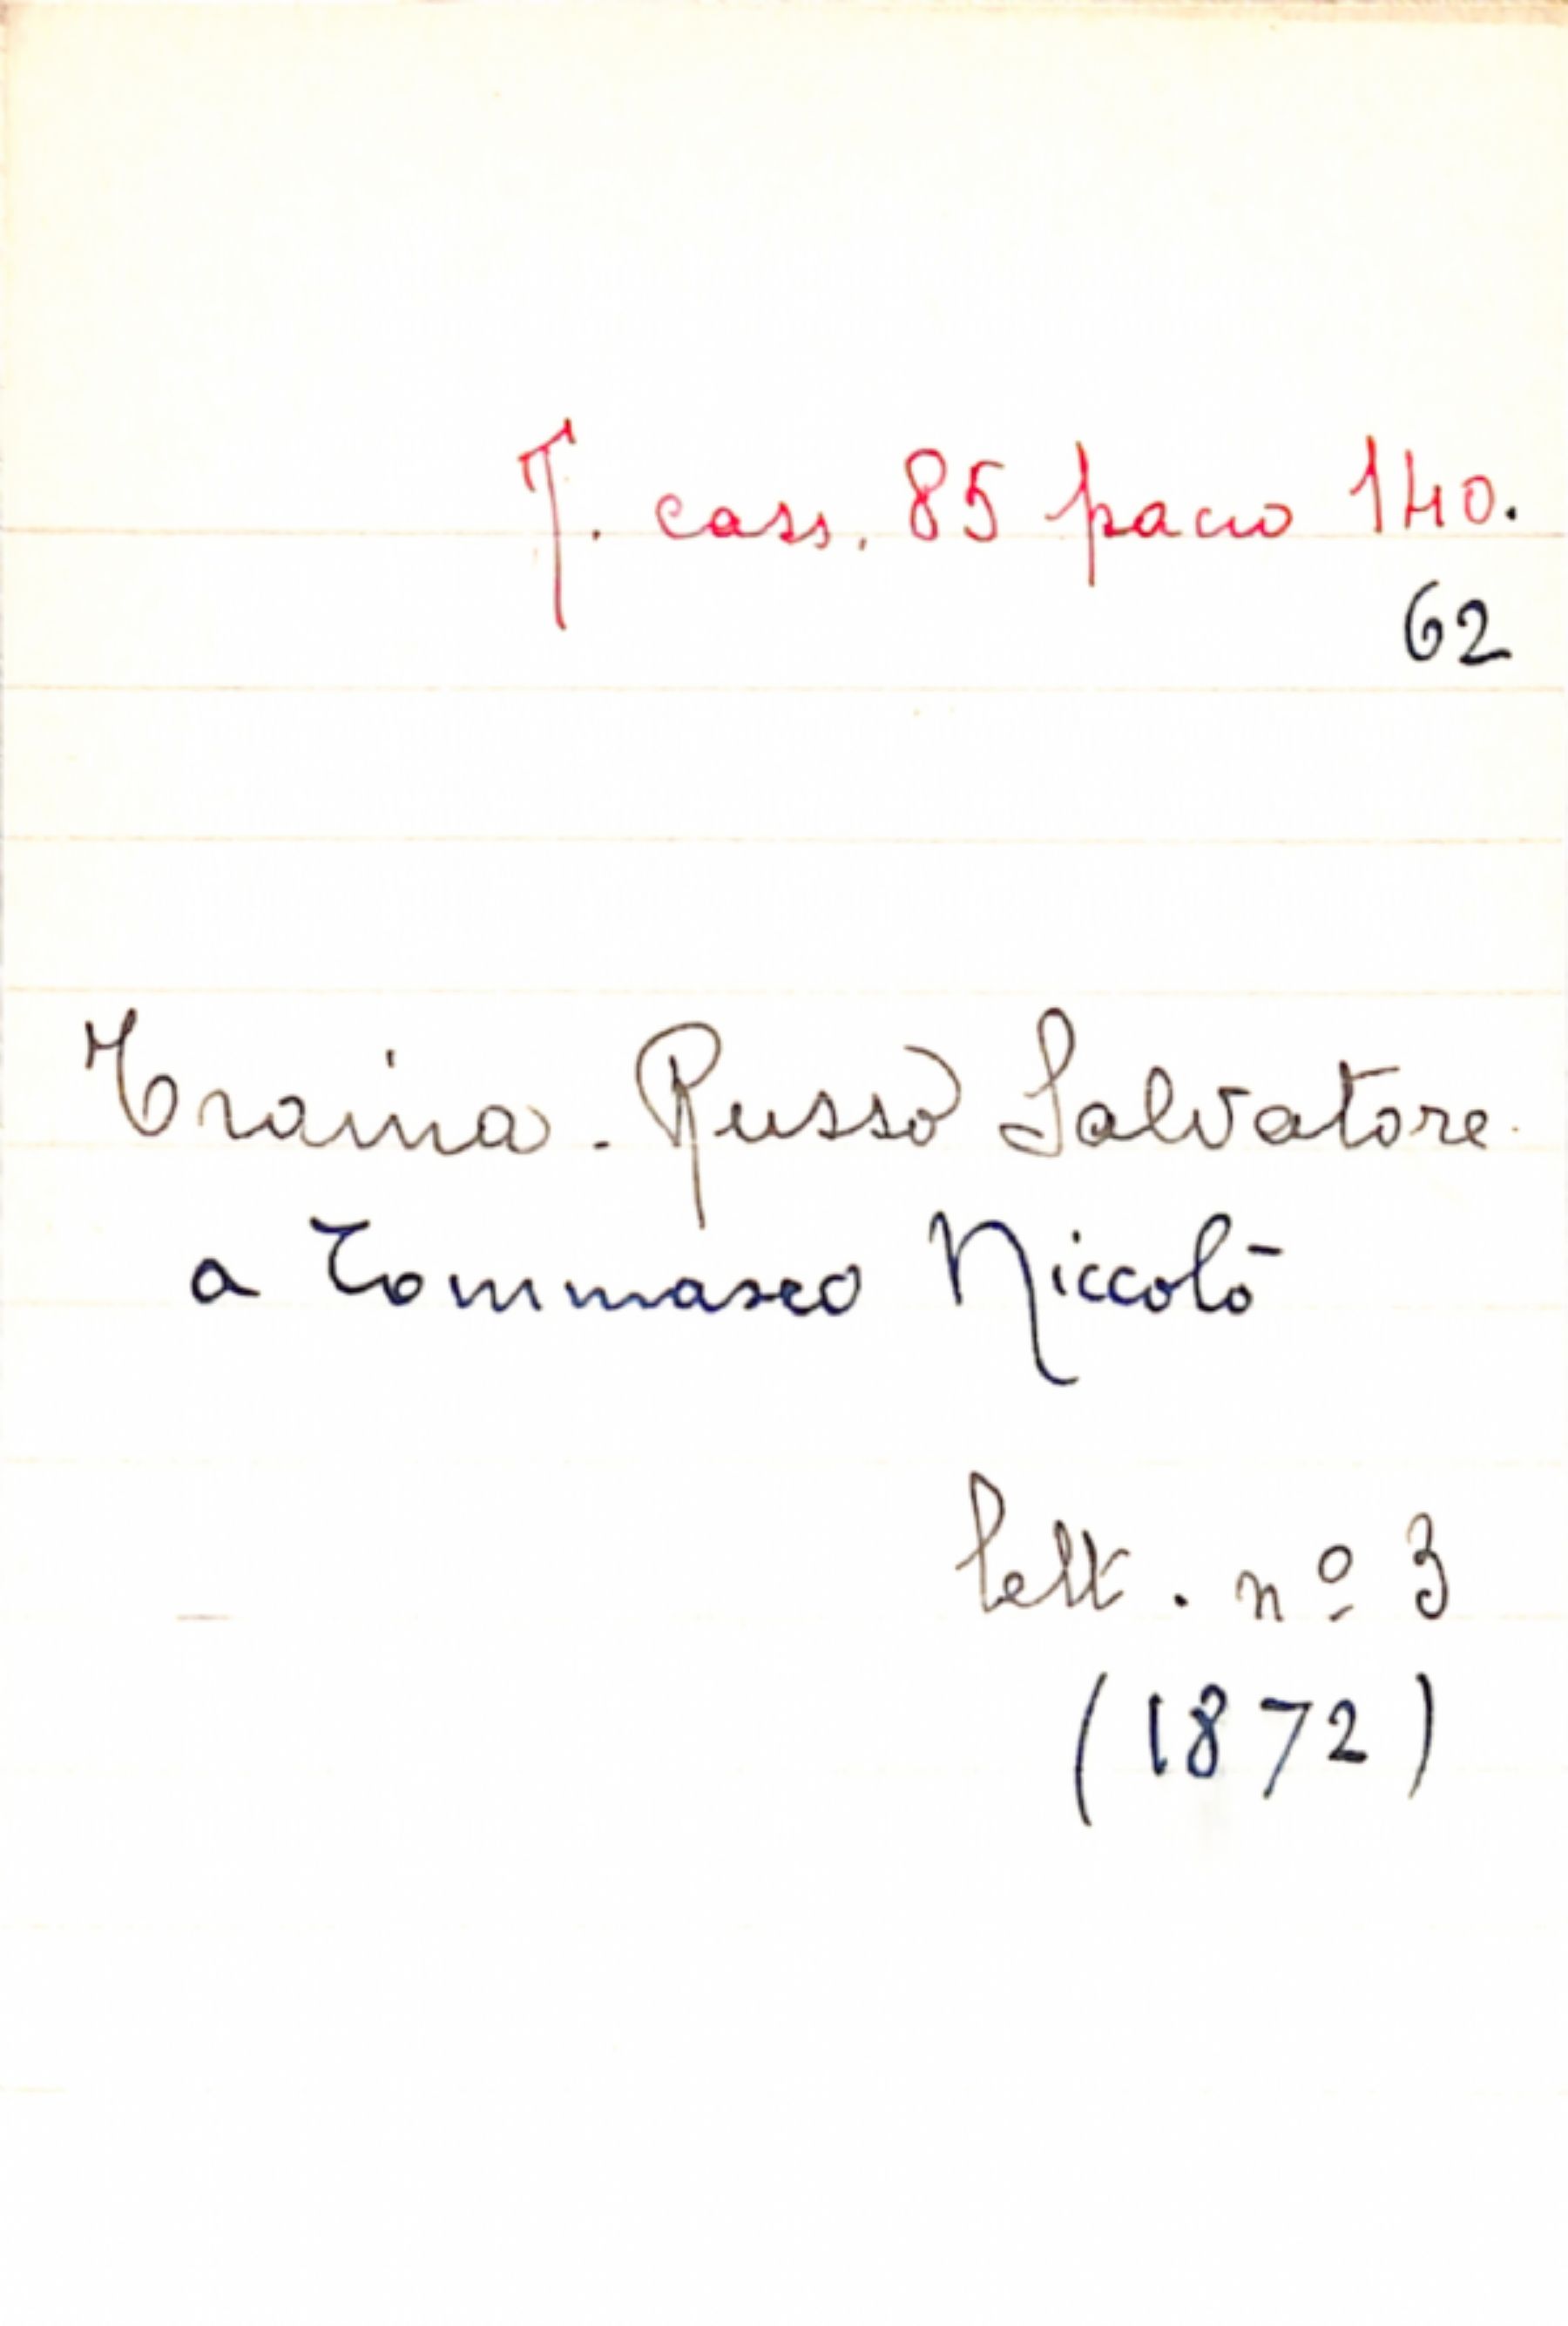 T. cass. 85 pacco 140.
62
Traina. Russo Salvatore.
a Tommaseo Niccolò
lett. nº 3
(1872)